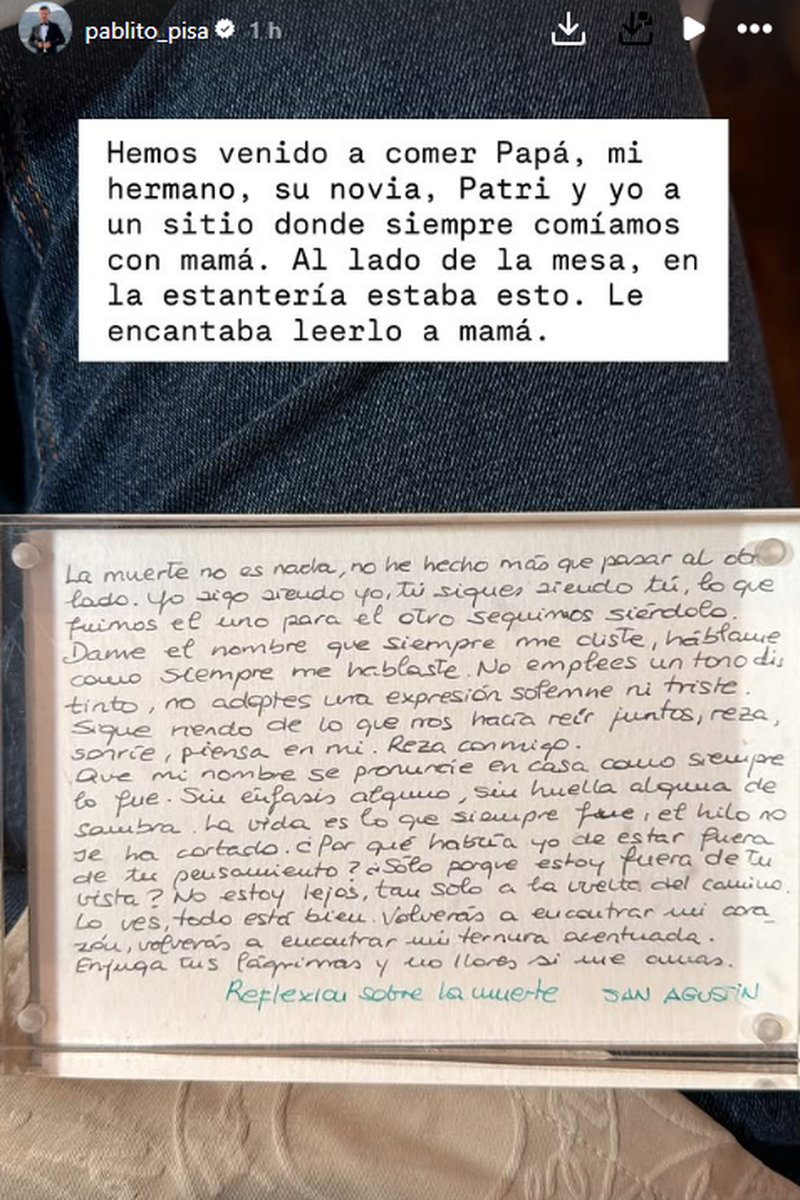 pablito_pisa 1 h
Hemos venido a comer Papá, mi
hermano, su novia, Patri y yo a
un sitio donde siempre comíamos
con mamá. Al lado de la mesa, en
la estantería estaba esto. Le
encantaba leerlo a mamá.
La muerte no es nada, no he hecho más que pasar al otro
lado. Yo sigo siendo yo, tú sigues siendo tú, lo que
fuimos el uno para el otro seguimos siéndolo.
Dame el nombre que siempre me diste, háblame
como siempre me hablaste. No emplees un tono dis
tinto, no adoptes una expresión solemne ni triste.
Sigue riendo de lo que nos hacía reír juntos, reza,
sonríe, piensa en mi. Reza conmigo.
Que mi nombre se pronuncie en casa como siempre
lo fue. Sin énfasis alguno, sin huella alguna de
sombra. La vida es lo que siempre fue, el hilo no
se ha cortado. ¿Por qué habría yo de estar fuera
de tu pensamiento? ¿Sólo porque estoy fuera de tu
vista? No estoy lejos, tan solo a la vuelta del camino.
Lo ves, todo está bien. Volverás a encontrar mi cora_
zón, volverás a encontrar mi ternura acentuada.
Enjuga tus lágrimas y no llores si me amas.
Reflexion sobre la muerte SAN AGUSTÍN